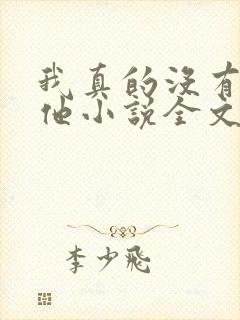 我真的没有
他小说全文
李少飛